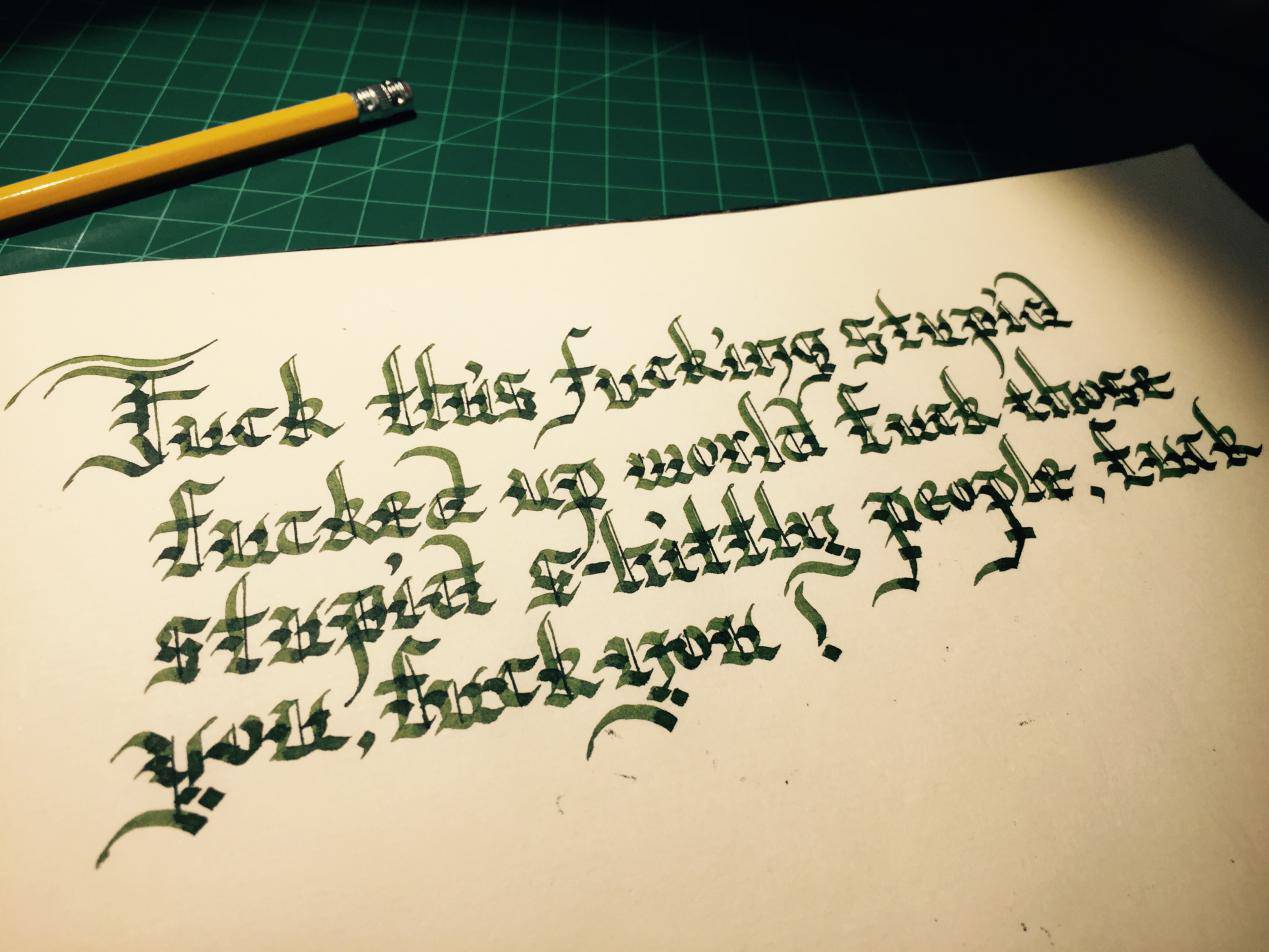 Fuck this fucking stupid
fucked up world fuck those
stupid shittly people, fuck
you, fuck you!